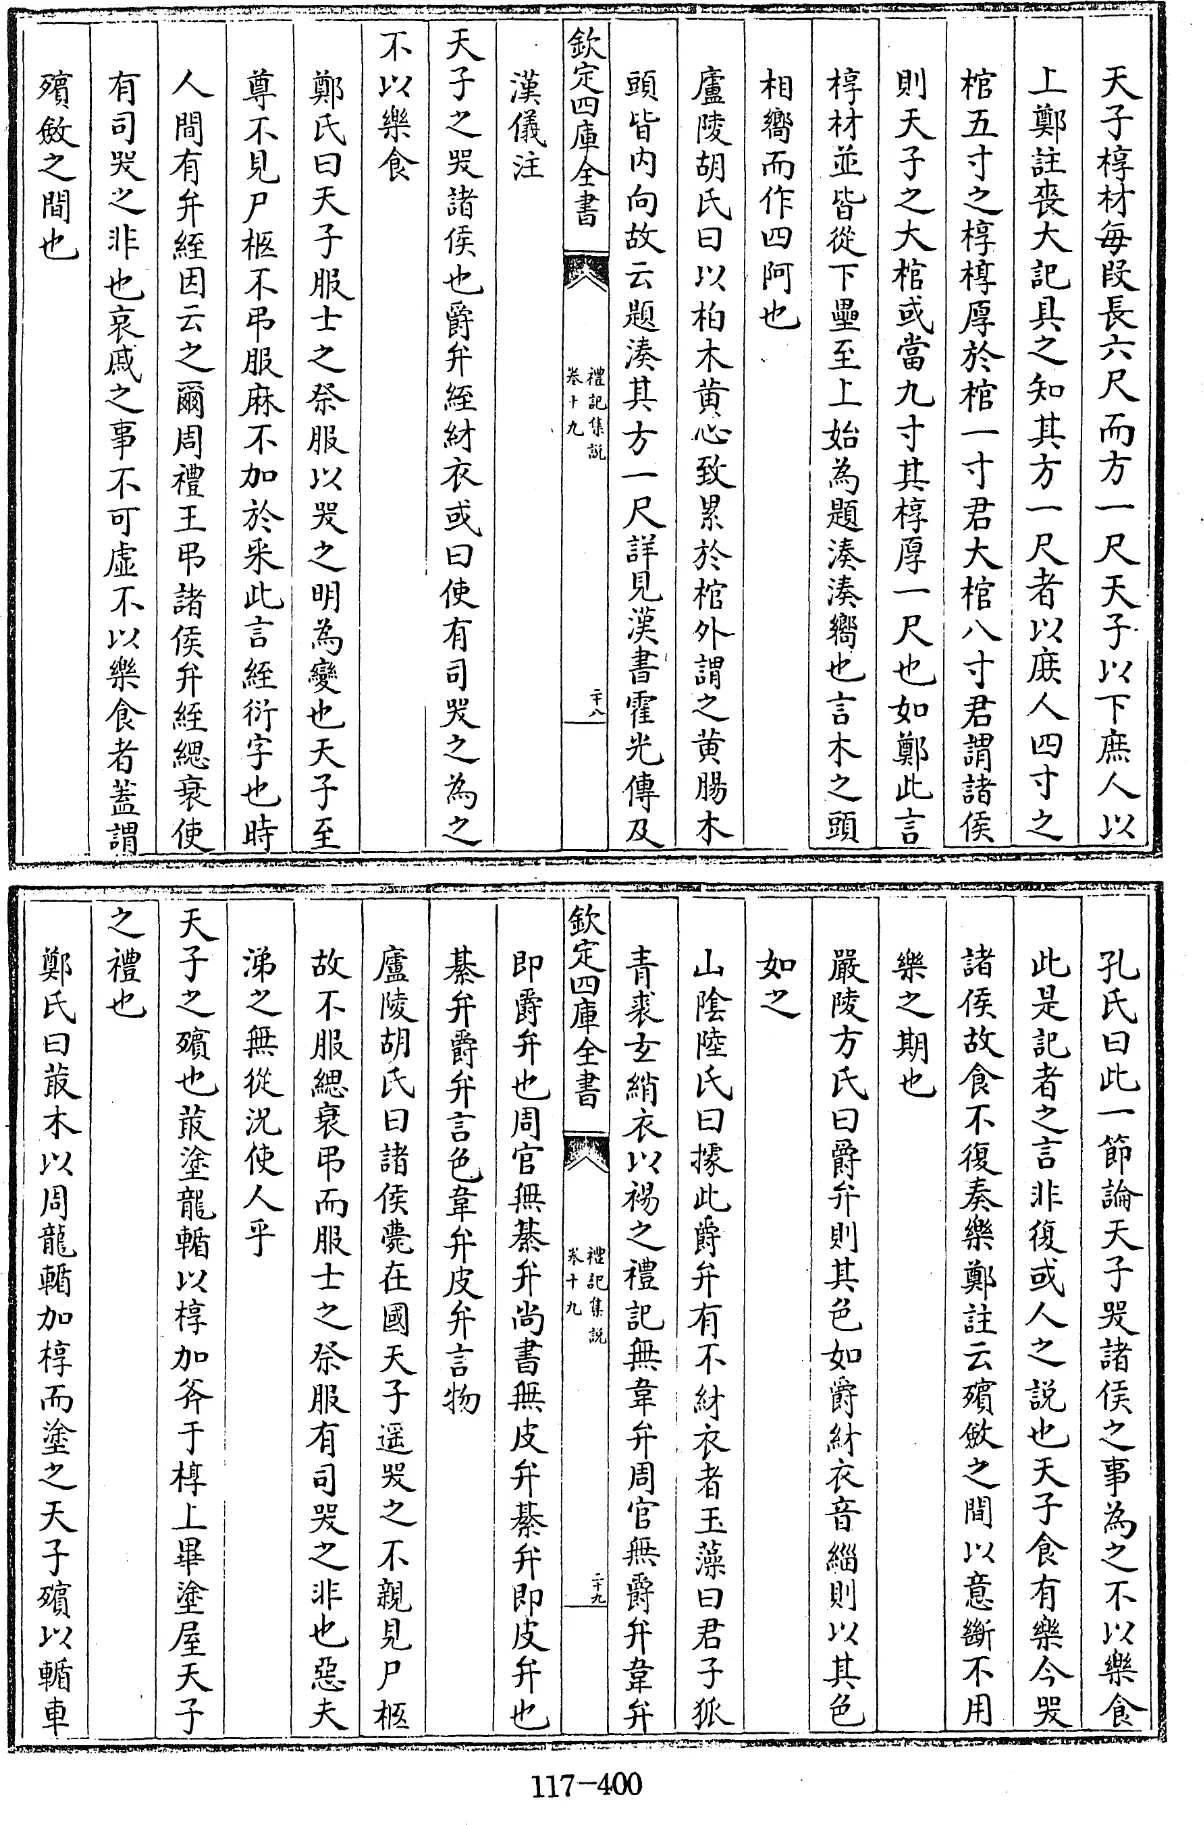 天子椁材每段長六尺而方一尺天子以下庶人以
上鄭註喪大記具之知其方一尺者以庶人四寸之
棺五寸之椁椁厚於棺一寸君大棺八寸君謂諸侯
則天子之大棺或當九寸其椁厚一尺也如鄭此言
椁材並皆從下壘至上始為題湊湊嚮也言木之頭
相嚮而作四阿也
廬陵胡氏曰以柏木黄心致累於棺外謂之黄腸木
頭皆内向故云題湊其方一尺詳見漢書霍光傳及
欽定四庫全書
禮記集説
卷十九
二十八
漢儀注
天子之哭諸侯也爵弁絰紂衣或曰使有司哭之為之
不以樂食
鄭氏曰天子服士之祭服以哭之明為變也天子至
尊不見尸柩不弔服麻不加於采此言絰衍字也時
人間有弁絰因云之爾周禮王弔諸侯弁絰緦衰使
有司哭之非也哀戚之事不可虚不以樂食者蓋謂
殯斂之間也
孔氏曰此一節論天子哭諸侯之事為之不以樂食
此是記者之言非復或人之説也天子食有樂今哭
諸侯故食不復奏樂鄭註云殯斂之間以意斷不用
樂之期也
嚴陵方氏曰爵弁則其色如爵紂衣音緇則以其色
如之
山陰陸氏曰據此爵弁有不紂衣者玉藻曰君子狐
青裘玄綃衣以裼之禮記無韋弁周官無爵弁韋弁
欽定四庫全書
禮記集説
卷十九
二十九
即爵弁也周官無綦弁尚書無皮弁綦弁即皮弁也
綦弁爵弁言色韋弁皮弁言物
廬陵胡氏曰諸侯薨在國天子遥哭之不親見尸柩
故不服緦衰弔而服士之祭服有司哭之非也惡夫
涕之無從況使人乎
天子之殯也菆塗龍輴以椁加斧于椁上畢塗屋天子
之禮也
鄭氏曰菆木以周龍輴加椁而塗之天子殯以輴車
117-400